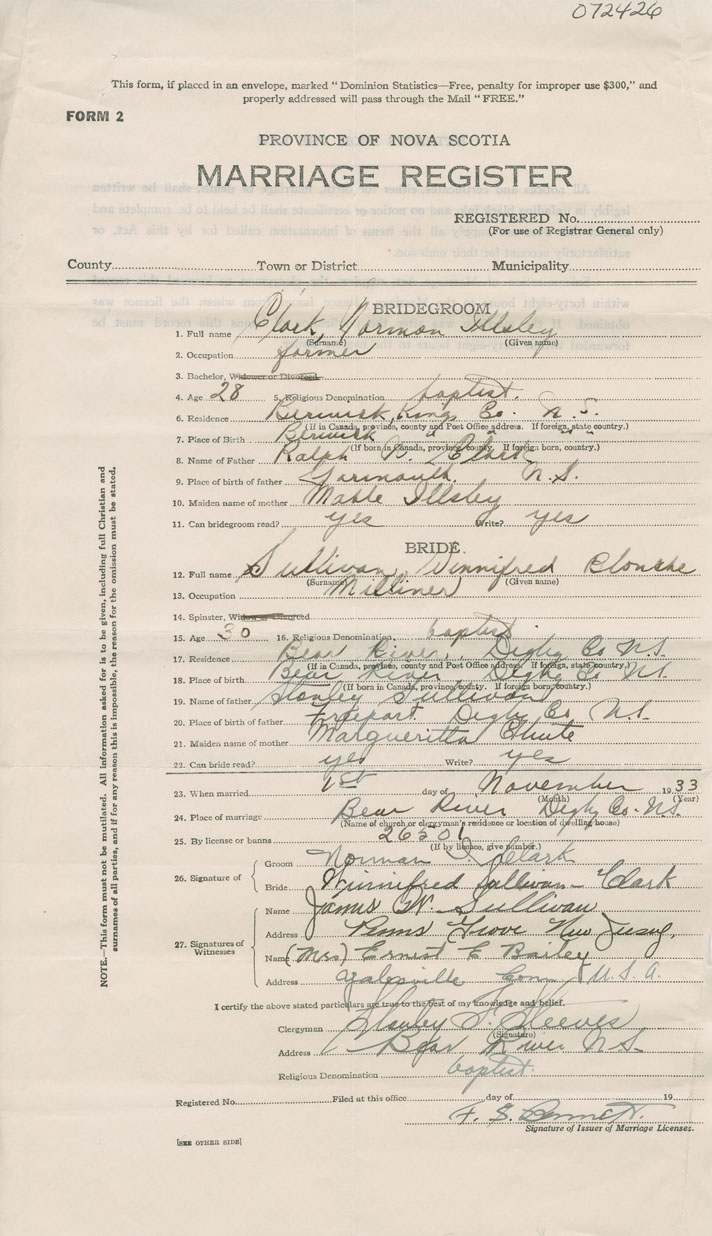 072426
This form, if placed in an envelope, marked "Dominion Statistics—Free, penalty for improper use $300," and
properly addressed will pass through the Mail "FREE."
FORM 2
PROVINCE OF NOVA SCOTIA
MARRIAGE REGISTER
REGISTERED No.
(For use of Registrar General only)
County Town or District Municipality
BRIDEGROOM
1. Full name Clark, Norman Illsley
(Surname) (Given name)
2. Occupation farmer
3. Bachelor, Widower or Divorced
4. Age 28 5. Religious Denomination baptist.
6. Residence Berwick, Kings Co. N.S.
(If in Canada, province, county and Post Office address. If foreign, state country.)
7. Place of Birth Berwick " " "
(If born in Canada, province, county. If foreign born, country.)
8. Name of Father Ralph Clark
9. Place of birth of father Yarmouth N.S.
10. Maiden name of mother Mable Illsley
11. Can bridegroom read? yes Write? yes
BRIDE.
12. Full name Sullivan, Winnifred Blanche
(Surname) (Given name)
13. Occupation Milliner
14. Spinster, Widow or Divorced
15. Age 30 16. Religious Denomination baptist
17. Residence Bear River, Digby Co N.S.
(If in Canada, province, county and Post Office address. If foreign, state country.)
18. Place of birth Bear River Digby Co N.S.
(If born in Canada, province, county. If foreign born, country.)
19. Name of father Stanley Sullivan
20. Place of birth of father Freeport Digby Co N.S.
21. Maiden name of mother Margueritta Chute
22. Can bride read? yes Write? yes
23. When married 1st day of November 1933
(Month) (Year)
24. Place of marriage Bear River Digby Co. N.S.
(Name of church or clergyman's residence or location of dwelling house)
25. By license or banns 26501
(If by licence, give number.)
26. Signature of
Groom Norman I. Clark
Bride Winnifred Sullivan-Clark
27. Signatures of
Witnesses
Name James W. Sullivan
Address Grove New Jersey,
Name (Mrs) Ernest E Bailey
Address Yalesville Conn U.S.A.
I certify the above stated particulars are true to the best of my knowledge and belief.
Clergyman S. Steeves
(Signature)
Address Bear River N.S.
Religious Denomination baptist.
Registered No. Filed at this office day of 19
F. S.
Signature of Issuer of Marriage Licenses.
[SEE OTHER SIDE]
NOTE.—This form must not be mutilated. All information asked for is to be given, including full Christian and
surnames of all parties, and if for any reason this is impossible, the reason for the omission must be stated.